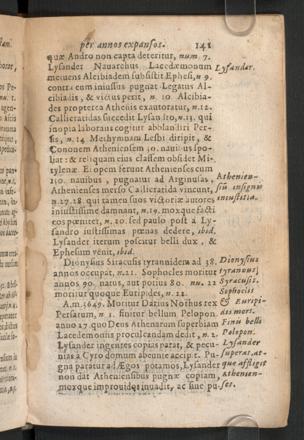 per annos expansos. 141
quæ Andro non capta deteritur, num. 7.
Lysander Nauarchus Lacedæmonum
metuens Alcibiadem subsistit Ephesi, n 9.
contra eum iniussus pugnat Legatus Alcibiadis,
& victus perit, n. 10. Alcibiades
propterea Athenis exautoratur, n. 12.
Callicratidas succedit Lysandro, n. 13. qui
inopia laborans cogitur ablandiri Persis,
n. 14. Methymnam Lesbi diripit, &
Cononem Atheniensem 30. nauibus spoliat:
& reliquam eius classem obsidet Mitylenæ.
E! opem ferunt Athenienses cum
150. nauibus, pugnatur ad Arginusas,
Athenienses merso Callicratida vincunt,
n. 27. 28. qui tamen suos victoriæ autores
iniustissime damnant, n. 29. mox quæ facti
eos pœnitet, n. 20. sed paulo post à Lysandro
iustissimas pœnas dedere, ibid.
Lysander iterum poscitur belli dux, &
Ephesum venit, ibid.
Dionysius Siracusis tyrannidem ad 38.
annos occupat, n. 21. Sophocles moritur
annos 90. natus, aut potius 80. nu. 22
moritur quoque Euripides, n. 22.
A.m. 3649. Moritur Darius Nothus rex
Persarum, n 1. finitur bellum Pelopon.
anno 27. quo Deus Athenarum superbiam
Lacedemoniis proculcandam dedit, n. 1.
Lysander ingentes copias parat, & pecunias
à Cyro domum abeunte accipit. Pugna
paratur ad Ægos potamos, Lysander
non dat Atheniensibus pugnæ copiam,
mox que improuidos inuadit, ac sine pu-
Lysander.
Atheniensium
insignis
iniustitia.
Dionysius
tyrannus,
Syracusis.
Sophocles
& Euripides
mors.
Finis belli
Pelopon.
Lysander
superat, atque
affligit
Athenienses.